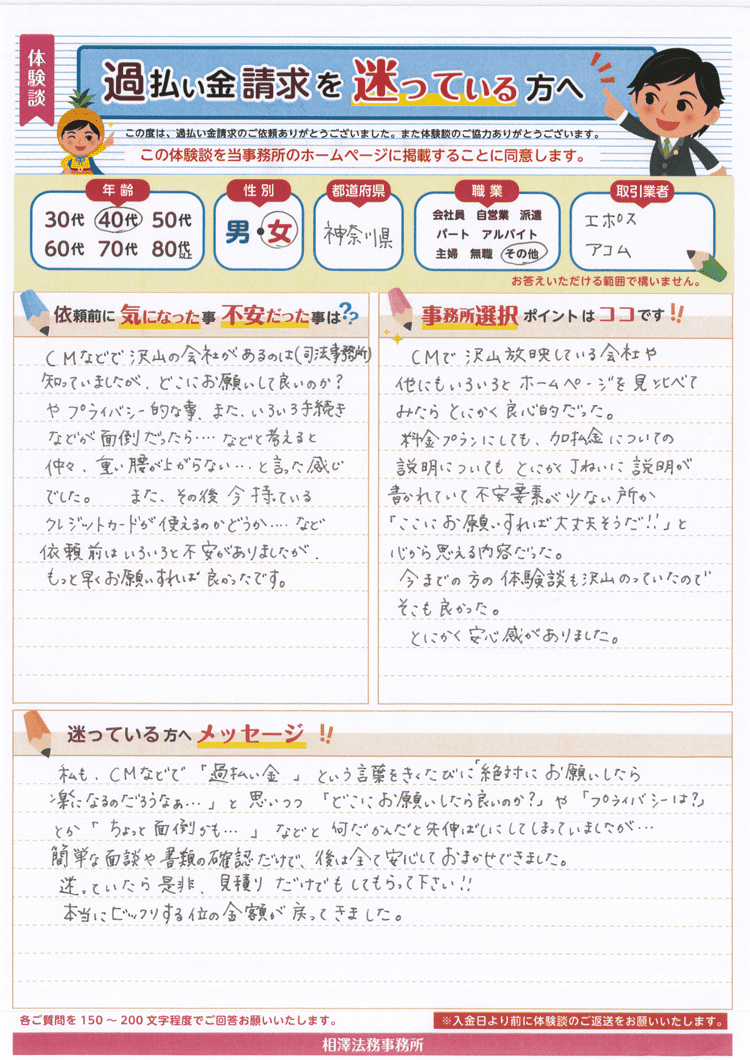 体験談
過払い金請求を迷っている方へ
この度は、過払い金請求のご依頼ありがとうございました。また体験談のご協力ありがとうございます。
この体験談を当事務所のホームページに掲載することに同意します。
年齢
30代 40代 50代
60代 70代 80代以上
性別
男・女
都道府県
神奈川県
職業
会社員 自営業 派遣
パート アルバイト
主婦 無職 その他
取引業者
エポス
アコム
お答えいただける範囲で構いません。
依頼前に気になった事 不安だった事は??
CMなどで沢山の会社があるのは(司法事務所)
知っていましたが、どこにお願いして良いのか?
や プライバシー的な事、また、いろいろ手続き
などが面倒だったら‥‥などと考えると
仲々、重い腰が上がらない…と言った感じ
でした。 また、その後 今持っている
クレジットカードが使えるのかどうか‥‥など
依頼前はいろいろと不安がありましたが、
もっと早くお願いすれば良かったです。
事務所選択ポイントはココです!!
CMで沢山放映している会社や
他にもいろいろとホームページを見比べて
みたらとにかく良心的だった。
料金プランにしても、加払金についての
説明についてもとにかく丁ねいに説明が
書かれていて不安要素が少ない所か
「ここにお願いすれば大丈夫そうだ!!」と
心から思える内容だった。
今までの方の体験談も沢山のっていたので
そこも良かった。
とにかく安心感がありました。
迷っている方へメッセージ!!
私も、CMなどで「過払い金」という言葉をきくたびに「絶対にお願いしたら
楽になるのだろうなぁ…」と思いつつ「どこにお願いしたら良いのか?」や「プライバシーは?」
とか「ちょっと面倒かも…」などと何だかんだと先伸ばしにしてしまっていましたが…
簡単な面談や書類の確認だけで、後は全て安心しておまかせできました。
迷っていたら是非、見積りだけでもしてもらって下さい!!
本当にビックリする位の金額が戻ってきました。
各ご質問を150~200文字程度でご回答お願いいたします。
※入金日より前に体験談のご返送をお願いいたします。
相澤法務事務所